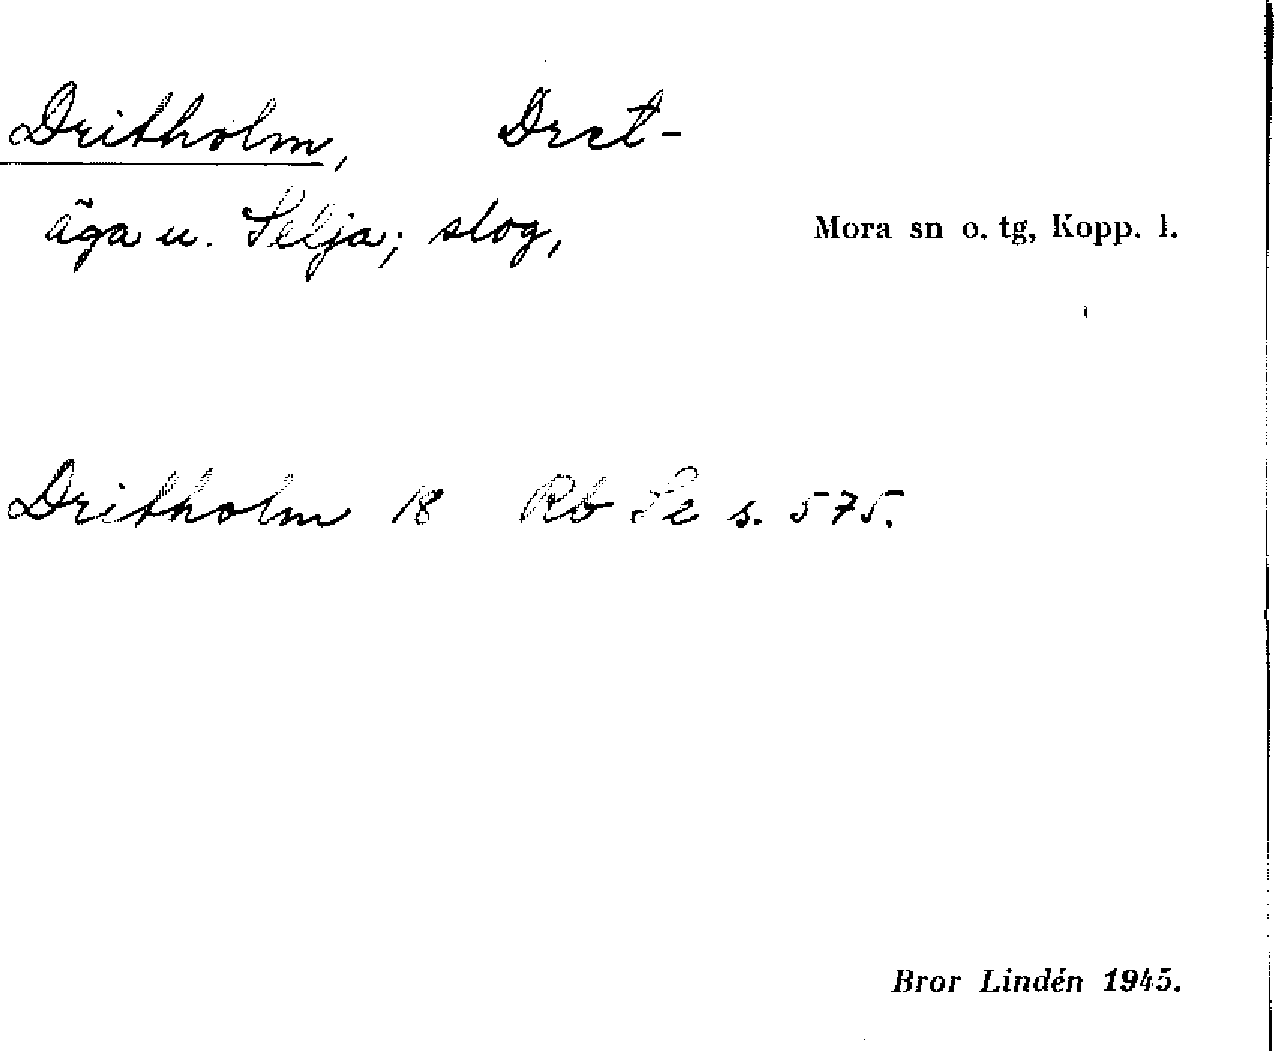 Dritholm, Dret-
äga u. Selja; slog,
Mora sn o. tg, Kopp. l.
Dritholm 18 Rb Se s. 575.
Bror Lindén 1945.